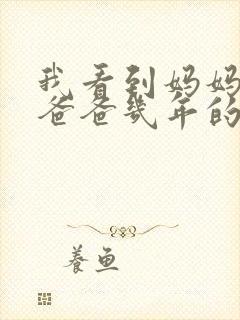 我看到妈妈
爸爸几年的
养鱼